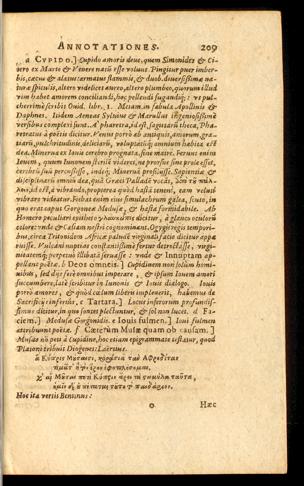 ANNOTATIONES. 209
a CVPIDO.] Cupido amoris deus, quem Simonides & Ci-
cero ex Marte & Venere natū esse volunt. Pingitur puer imber-
bis, cæcus & alatus: armatus flammis, & duob. diuersissimæ na-
turæ spiculis, altero videlicet aureo, altero plumbeo, quorum illud
vim habet amorem conciliandi, hoc pellendi fugandíq; : vt pul-
cherrimè scribit Ouid. libr. 1. Metam. in fabula Apollinis &
Daphnes. Itidem Aeneas Syluius & Marullus ingeniosissimè
versibus complexi sunt. A pharetra, id est, sagittarū theca, Pha-
retratus à poëtis dicitur. Venus porrò ab antiquis, amorum, gra-
tiarū, pulchritudinis, deliciarū, voluptatūq; omnium habita est
dea. Minerua ex Iouis cerebro prognata, sine matre. Ferunt enim
Iouem, quum Iunonem sterilē videret, ne prorsus sine prole esset,
cerebrū suū percussisse, indéq; Mineruā produxisse. Sapientiæ &
disciplinarū omniū dea, quā Græci Pallada vocāt,
id est, à vibrando, propterea quòd hastā teneat, eam veluti
vibrare videatur. Fiebat enim eius simulachrum galea, scuto, in
quo erat caput Gorgonis Medusæ, & hasta formidabile. Ab
Homero peculiari epitheto γλαυκῶπις dicitur, à glauco oculorū
colore: vnde & Cæsiam nostri cognominant. Ogygis regis tempori-
bus, circa Tritonidem Africæ paludē virginali facie dicitur appa-
ruisse. Vulcani nuptias constantissimè fertur detrectasse, virgi-
nitatémq; perpetuò illibatā seruasse : vnde & Innuptam ap-
pellant poëtæ. b Deos omneis.] Cupidinem non solum homi-
nibus, sed diis ferè omnibus imperare, & ipsum Iouem amori
succumbere, latè scribitur in Iunonis & Iouis dialogo. Iouis
porrò amores, & quòd cælum liberū impleuerit, habemus de
Sacrificiis inferiùs. c Tartara.] Locus inferorum profundis-
simus dicitur, in quo sontes plectuntur, & sol non lucet. d Fa-
ciem.] Medusæ Gorgonidis. e Iouis fulmen.] Ioui fulmen
attribuunt poëtæ. f Cæterùm Musæ quam ob causam.]
Musas nō peti à Cupidine, hoc etiam epigrammate testatur, quod
Platoni tribuit Diogenes Laërtius.
Hoc ita vertit Bentinus:
o Hæc